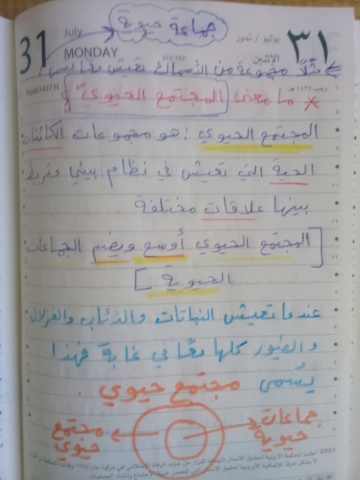 جماعة حيوية
31 July يوليو / تموز ٣١
MONDAY الإثنين
212-153
مثلاً مجموعة من السمالك تعيش بقا نس
* ما معنى المجتمع الحيوي" ؟
المجتمع الحيوي : هو مجموعات الكائنات
الحية التي تعيش في نظام بيئي وتربط
بينها علاقات مختلفة .
[ المجتمع الحيوي أوسع ويضم الجماعات
الحيوية ]
عندما تعيش النباتات والذئاب والغزلان
والطيور كلها معًا في غابة فهذا
يُسمى مجتمع حيوي .
مجتمع حيوي جماعات حيوية